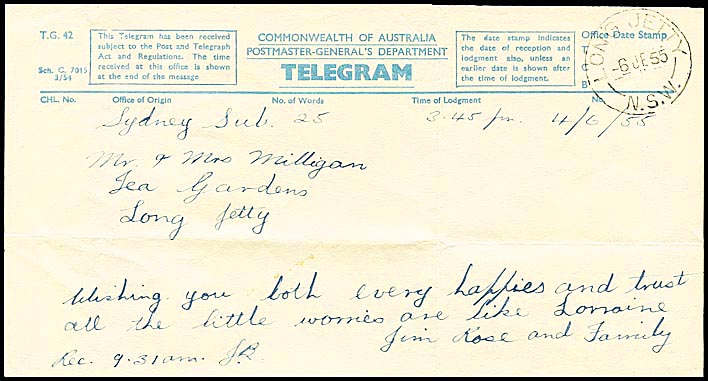 T.G. 42
Sch. C. 7015
3/54
This Telegram has been received
subject to the Post and Telegraph
Act and Regulations. The time
received at this office is shown
at the end of the message
COMMONWEALTH OF AUSTRALIA
POSTMASTER-GENERAL'S DEPARTMENT
TELEGRAM
The date stamp indicates
the date of reception and
lodgment also, unless an
earlier date is shown after
the time of lodgment.
Office Date Stamp
LONG JETTY
-6 JE 55
N.S.W.
CHL. No. Office of Origin No. of Words Time of Lodgment No.
Sydney Sub. 25 3.45 pm. 4/6/55
Mr. & Mrs Milligan
Tea Gardens
Long Jetty
Wishing you both every happies and trust
all the little worries are like Lorraine
Jim Rose and Family
Rec. 9.31am.